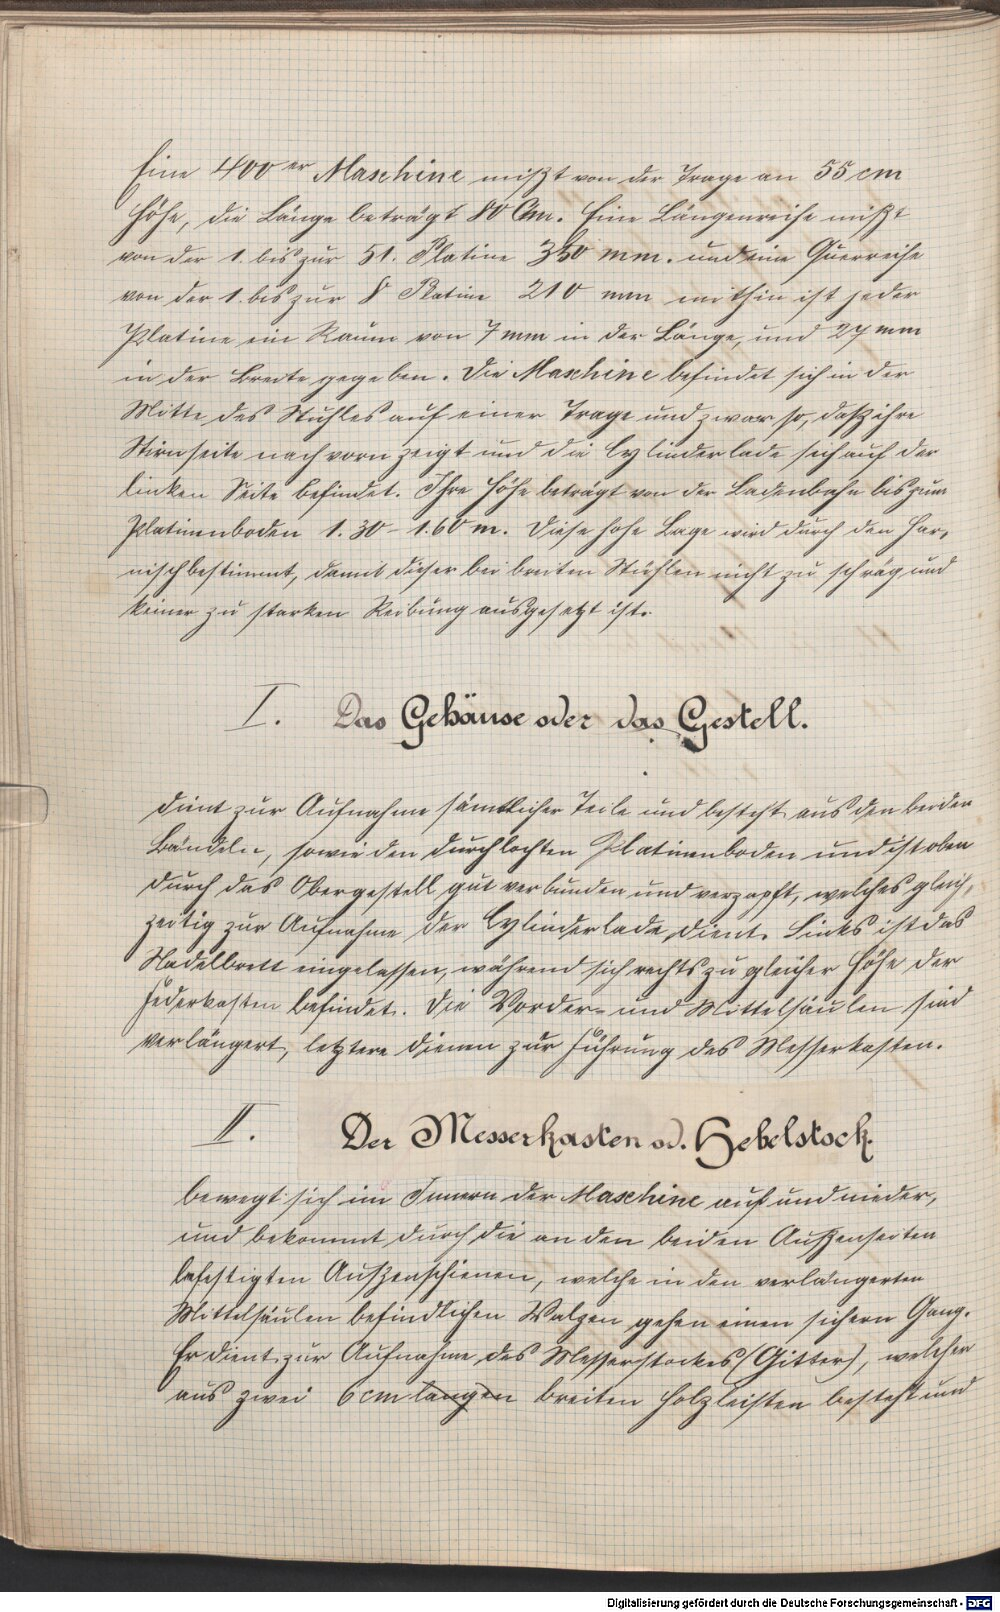 Eine 400er Maschine mißt von der Trage an 55 cm
Höhe, die Länge beträgt 80 Cm. Eine Längenreihe mißt
von der 1. bis zur 51. Platine 350 mm. und eine Querreihe
von der 1. bis zur 8 Platine 210 mm mithin ist jeder
Platine ein Raum von 7 mm in der Länge, und 27 mm
in der Breite gegeben. Die Maschine befindet sich in der
Mitte des Stuhles auf einer Trage und zwar so, daß ihre
Stirnseite nach vorn zeigt und die Cylinderlade sich auf der
linken Seite befindet. Ihre Höhe beträgt von der Ladenbahn bis zum
Platinenboden 1.30 - 1.60 m. Diese hohe Lage wird durch den Har-
nisch bestimmt, damit dieser bei breiten Stühlen nicht zu schräg und
keiner zu starken Reibung ausgesetzt ist.
I. Das Gehäuse oder das Gestell.
dient zur Aufnahme sämtlicher Teile und besteht aus den beiden
Bändeln, sowie den durchlochten Platinenboden und ist oben
durch das Obergestell gut verbunden und verzapft, welches gleich-
zeitig zur Aufnahme der Cylinderlade dient. Links ist das
Nadelbrett eingelassen, während sich rechts zu gleicher Höhe der
Federkasten befindet. Die Vorder- und Mittelsäulen sind
verlängert, letztere dienen zur Führung des Messerkasten.
II. Der Messerkasten od. Hebelstock.
bewegt sich im Innern der Maschine auf und nieder,
und bekommt durch die an den beiden Außenseiten
befestigten Außenschienen, welche in den verlängerten
Mittelsäulen befindlichen Walzen gehen einen sichern Gang.
Er dient zur Aufnahme des Messerstockes (Gitter), welcher
aus zwei 6 cm langen breiten Holzleisten besteht und
Digitalisierung gefördert durch die Deutsche Forschungsgemeinschaft - DFG